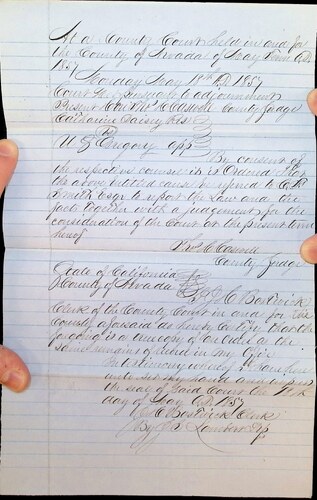 At a County Court held in and for
the County of Nevada of May Term A.D.
1857
Monday May 19th A.D. 1857
Court met pursuant to adjournment
Present Hon County Judge
Catharine Daisey Plff
vs
U S Gregory appt
By consent of
the respective counsel it is Ordered that
the above entitled cause be referred to C. F.
Smith Esqr to report the law and the
facts together with a judgement for the
consideration of the Court at the present term
hereof
County Judge
State of California
County of Nevada C Bostwick
Clerk of the County Court in and for the
County aforesaid do hereby certify that the
foregoing is a true copy of an order as the
same remains of record in my Office
In testimony whereof I have here
unto set my hand and
the seal of said Court the
day of May A.D. 1857
C Bostwick Clerk
By Lambert Dp